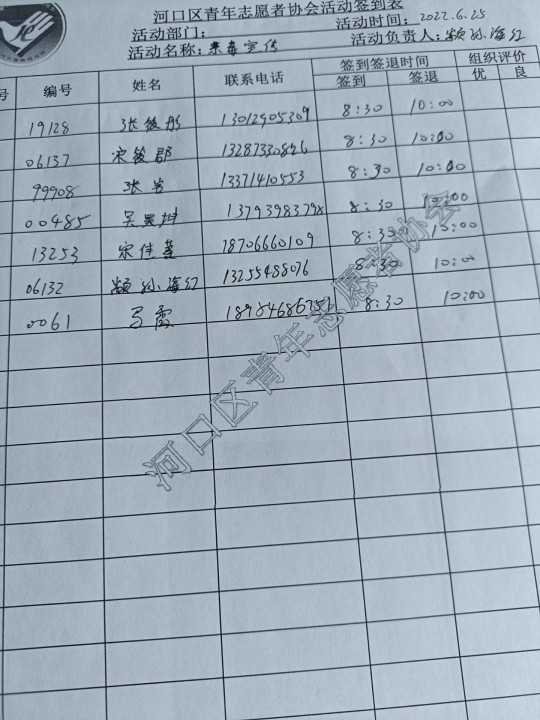 河口区青年志愿者协会活动签到表
活动部门: 活动时间: 2022.6.25
活动名称: 禁毒宣传 活动负责人: 颛孙海红
号 编号 姓名 联系电话 签到签退时间 组织评价
签到 签退 优 良
19128 张 13012905309 8:30 10:00
06137 宋俊郡 13287330826 8:30 10:00
99908 张岩 13371410553 8:30 10:00
00485 吴 1379398379 8:30 10:00
13253 宋佳 18706660109 8:30 10:00
06132 颛孙海红 13255488076 8:30 10:00
0061 马霞 8:30 10:00
河口区青年志愿者协会